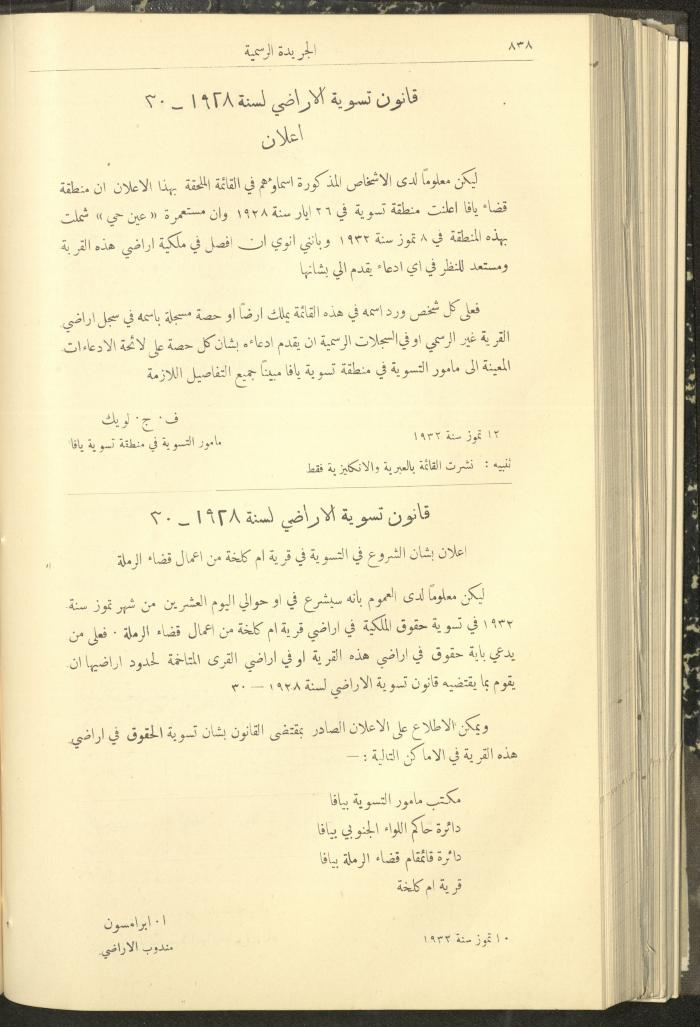 ٨٣٨
الجريدة الرسمية
قانون تسوية الاراضي لسنة ١٩٢٨ ـ ٣٠
اعلان
ليكن معلوماً لدى الاشخاص المذكورة اسماؤهم في القائمة الملحقة بهذا الاعلان ان منطقة
قضاء يافا اعلنت منطقة تسوية في ٢٦ ايار سنة ١٩٢٨ وان مستعمرة «عين حي» شملت
بهذه المنطقة في ٨ تموز سنة ١٩٣٢ وبانني انوي ان افصل في ملكية اراضي هذه القرية
ومستعد للنظر في اي ادعاء يقدم الي بشانها
فعلى كل شخص ورد اسمه في هذه القائمة يملك ارضاً او حصة مسجلة باسمه في سجل اراضي
القرية غير الرسمي او في السجلات الرسمية ان يقدم ادعاءه بشان كل حصة على لائحة الادعاءات
المعينة الى مامور التسوية في منطقة تسوية يافا مبيناً جميع التفاصيل اللازمة
ف٠ ج٠ لويك
١٢ تموز سنة ١٩٣٢
مامور التسوية في منطقة تسوية يافا
تنبيه : نشرت القائمة بالعبرية والانكليزية فقط
قانون تسوية الاراضي لسنة ١٩٢٨ ـ ٣٠
اعلان بشان الشروع في التسوية في قرية ام كلخة من اعمال قضاء الرملة
ليكن معلوماً لدى العموم بانه سيشرع في او حوالي اليوم العشرين من شهر تموز سنة
١٩٣٢ في تسوية حقوق الملكية في اراضي قرية ام كلخة من اعمال قضاء الرملة ٠ فعلى من
يدعي باية حقوق في اراضي هذه القرية او في اراضي القرى المتاخمة لحدود اراضيها ان
يقوم بما يقتضيه قانون تسوية الاراضي لسنة ١٩٢٨ — ٣٠
ويمكن الاطلاع على الاعلان الصادر بمقتضى القانون بشان تسوية الحقوق في اراضي
هذه القرية في الاماكن التالية : —
مكتب مامور التسوية بيافا
دائرة حاكم اللواء الجنوبي بيافا
دائرة قائمقام قضاء الرملة بيافا
قرية ام كلخة
ا٠ ابرامسون
١٠ تموز سنة ١٩٣٢
مندوب الاراضي